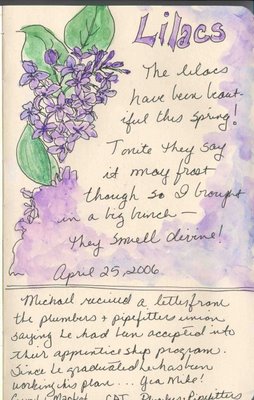 Lilacs
The lilacs
have been beaut-
iful this spring!
Tonite they say
it may frost
though so I brought
in a big bunch —
they smell divine!
April 25, 2006
Michael received a letter from
the plumbers + pipefitters union
saying he had been accepted into
their apprenticeship program.
Since he graduated he has been
working his plan... Yea Mike!
Pipefitters